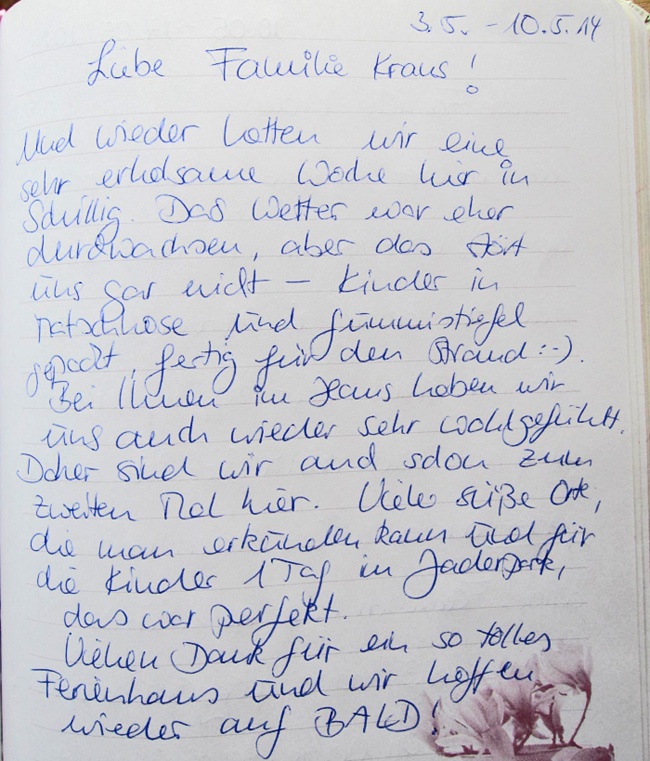 3.5. - 10.5.14
Liebe Familie Kraus!
Und wieder hatten wir eine
sehr erholsame Woche hier in
Schillig. Das Wetter war eher
durchwachsen, aber das stört
uns gar nicht - Kinder in
Matschhose und Gummistiefel
gepackt, fertig für den Strand :-).
Bei Ihnen im Haus haben wir
uns auch wieder sehr wohlgefühlt.
Daher sind wir auch schon zum
zweiten Mal hier. Viele süße Orte,
die man erkunden kann und für
die Kinder 1 Tag im Jaderpark,
das war perfekt.
Vielen Dank für ein so tolles
Ferienhaus und wir hoffen
wieder auf BALD!